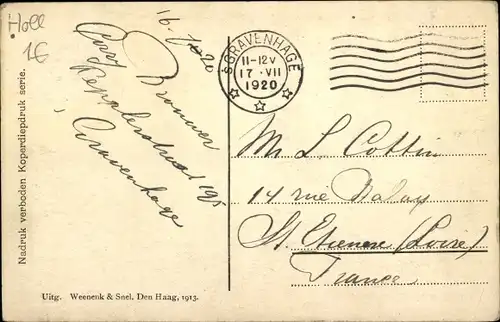 Holl
1€
16.
1920
Brouwer
Keplerstraat 195
Gravenhage
'S GRAVENHAGE
11-12V
17 · VII
1920
M L Cottin
14 rue
St. Etienne (Loire)
France
Nadruk verboden Koperdiepdruk serie.
Uitg. Weenenk & Snel. Den Haag, 1913.